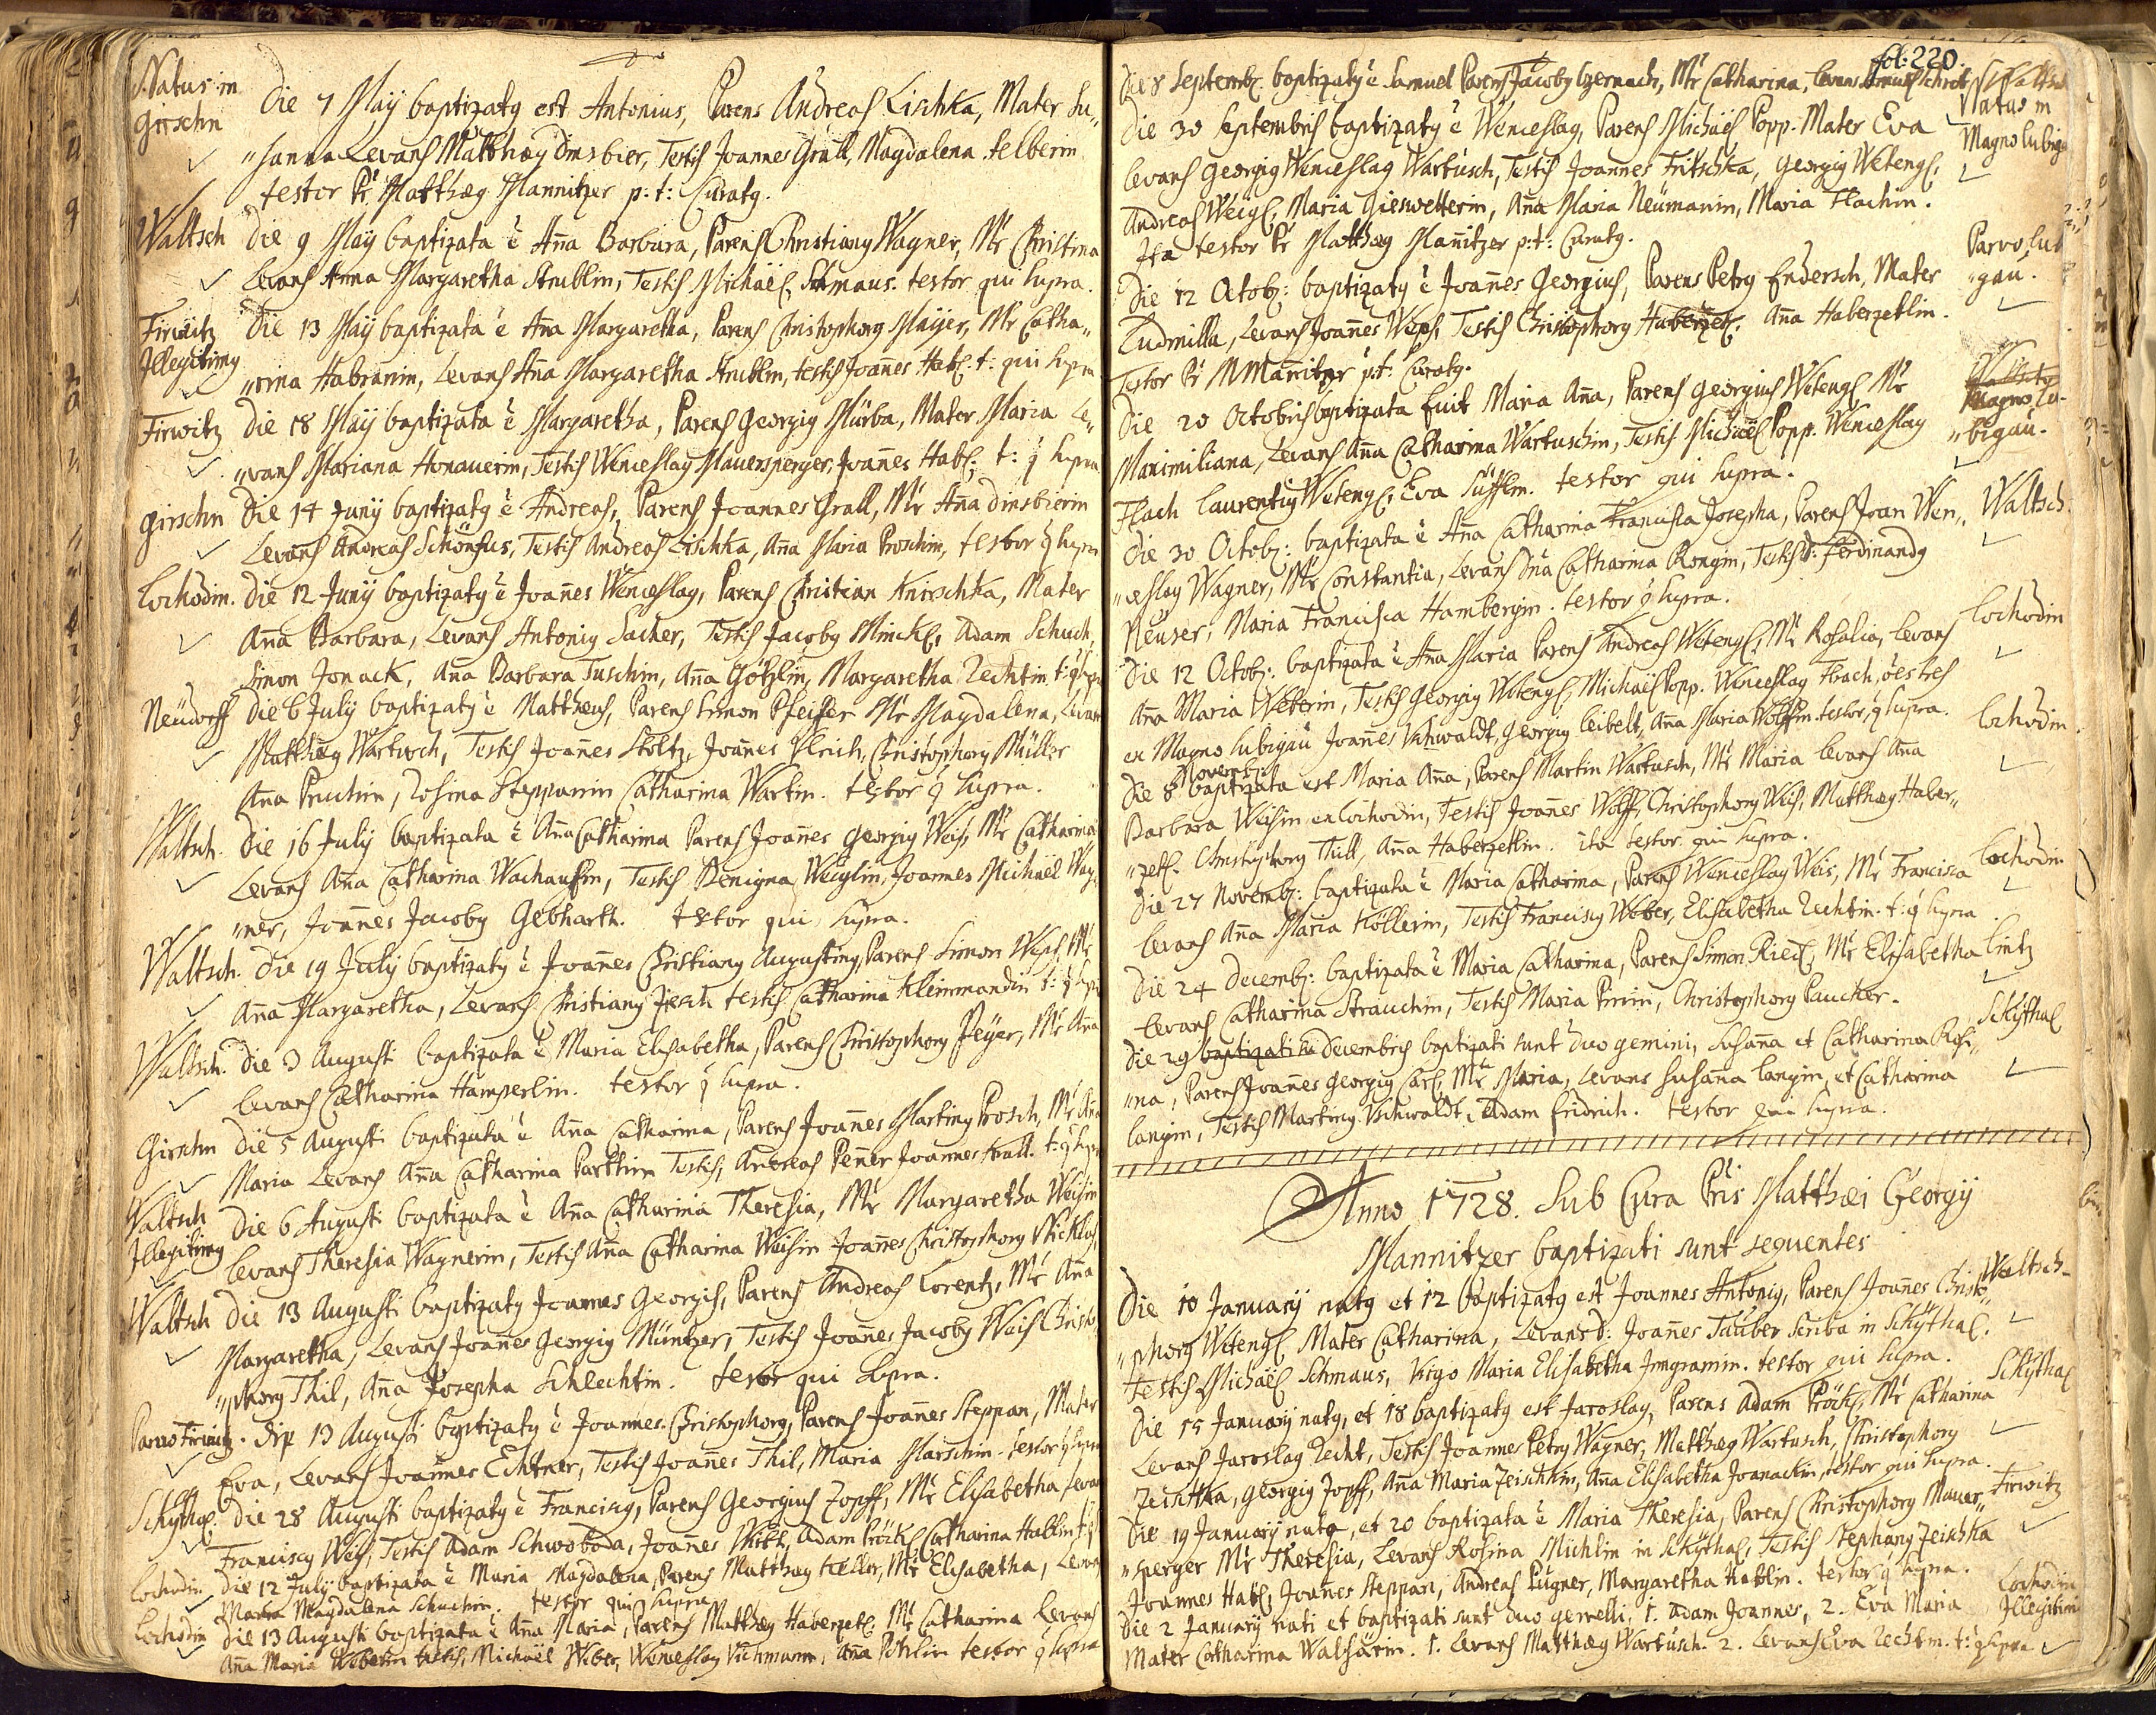 Natus in
Girschn
Die 7 Maij baptizatg est Antonius, Parens Andreas Lischka, Mater Su„
„sanna Levans Matthæg Dinsbier, Testis Joannes Grall, Magdalena Felberin
testor Pr Matthæg Mannitzer p: t: Curatg.
Waltsch Die 9 Maij baptizata ē Aña Barbara, Parens Christiang Wagner, Mr Christina
Levans Anna Margaretha Strublin, Testis Michaël Schmaus. testor qui supra.
Firwitz Die 13 Maij baptizata ē Aña Margaretha, Parens Christophorg Maijer, Mr Catha„
Illegitimg
„rina Habranin, Levans Aña Margaretha Strublin, testis Joañes Habl. t: qui supra
Firwitz Die 18 Maij baptizata ē Margaretha, Parens Georgig Murba, Mater Maria Le„
„vans Mariana Honauerin, Testis Wenceslag Mauersperger, Joañes Habl. t: q supra
Girschn Die 14 Junij baptizatg ē Andreas, Parens Joannes Grall, Mr Aña Dinsbierin
Levans Andreas Schönfus, Testis Andreas Lischka, Aña Maria Proschin, testor q supra
Lochodin. Die 12 Junij baptizatg ē Joañes Wenceslag, Parens Christian Knirschka, Mater
Aña Barbara, Levans Antonig Sacher, Testis Jacobg Minckl, Adam Schuch,
Simon Jonack, Aña Barbara Tuschin, Aña Götzlin, Margaretha Zechtin. t: q supra
Neudorff Die 6 Julij baptizatg ē Matthæus, Parens Simon Pfeiffer Mr Magdalena, Levans
Matthæg Wartusch, Testis Joañes Stoltz, Joañes Ulrich, Christophorg Müller
Aña Pruchin, Rosina Steppanin Catharina Wartin. testor q supra.
Waltsch. Die 16 Julij baptizata ē Aña Catharina Parens Joañes Georgig Weis, Mr Catharina
Levans Aña Catharina Wachausin, Testis Benigna Weiglin, Joannes Michaël Wag„
„ner, Joañes Jacobg Gebharth. testor qui supra.
Waltsch. Die 19 Julij baptizatg ē Joañes Christiang Augusting, Parens Simon Weps, Mr
Aña Margaretha, Levans Christiang Jesch testis Catharina Kleinmandin t: q supra
Waltsch. Die 3 Augusti baptizata ē Maria Elisabetha, Parens Christophorg Peyer, Mr Aña
Levans Catharina Hamperlin. testor q supra.
Girschn Die 5 Augusti baptizata ē Aña Catharina, Parens Joañes Marting Prosch, Mr Aña
Maria Levans Aña Catharina Parthin Testis, Andreas Peñer Joannes Grall. t: q supra
Waltsch Die 6 Augusti baptizata ē Aña Catharina Theresia, Mr Margaretha Weisin
Illegitimg
Levans Theresia Wagnerin, Testis Aña Catharina Weisin Joañes Christophorg Nicklas,
Waltsch Die 13 Augusti baptizatg Joannes Georgig, Parens Andreas Lorentz, Mr Aña
Margaretha, Levans Joañes Georgig Müntzer, Testis Joañes Jacobg Weis Christo„
„phorg Thil, Aña Josepha Schlechtin. testor qui supra.
Parvo Firwitz. Die 13 Augusti baptizatg ē Joannes Christophorg, Parens Joañes Steppan, Mater
Eva, Levans Joannes Echtner, Testis Joañes Thil, Maria Marschin. testor q supra
Schÿthal. Die 28 Augusti baptizatg ē Franciscg, Parens Georgius Zopff, Mr Elisabetha, Levans
Franciscg Weis, Testis Adam Schwoboda, Joañes Wirth, Adam Pröckl, Catharina Hablin t: q
Lochodin Die 12 Julij baptizata ē Maria Magdalena, Parens Matthæg Keller, Mr Elisabetha, Levans
Maria Magdalena Schuchin. testor qui supra
Lochodin Die 13 Augusti baptizata ē Aña Maria, Parens Matthæg Haberzetl. Mr Catharina Levans
Aña Maria Weberin testis, Michaël Weber, Wenceslag Vichmann, Aña Pohlin testor q supra
fol: 220.
Die 8 Septembr. baptizatg ē Samuel Parens Jacobg Czernach, Mr Catharina, Levans Samuel Schrott
Die 30 Septembris baptizatg ē Wenceslag, Parens Michaël Popp. Mater Eva Natus in
Magno lubigau
Levans Georgig Wenceslag Wartusch, Testis Joannes Fritschka, Georgig Wetengl.
Andreas Weigl, Maria Gieswetterin, Aña Maria Neümanin, Maria Flachin.
Ita testor Pr Matthæg Mañitzer p: t: Curatg.
Die 12 Octob: baptizatg ē Joañes Georgius, Parens Petrg Endersch, Mater Parvo lub
„gau.
Ludmilla, Levans Joañes Weps, Testis Christophorg Haberzetl. Aña Haberzetlin.
Testor Pr M Mañitzer p: t: Curatg.
Die 20 Octobris baptizata fuit Maria Aña, Parens Georgius Wetengl Mr Magno Lu-
„bigau.
Maximiliana, Levans Aña Catharina Wartuschin, Testis Michaël Popp. Wenceslag
Flach Laurentig Wetengl, Eva Süsslin. testor qui supra.
Die 30 Octob: baptizata ē Aña Catharina Francisca Josepha, Parens Joan Wen„ Waltsch.
„ceslag Wagner, Mr Constantia, Levans Dña Catharina Rongin, Testis D: Ferdinandg
Neuser, Maria Francisca Hambergin. testor q supra.
Die 12 Octob: baptizata ē Aña Maria Parens Andreas Wetengl, Mr Rosalia, Levans Lochodin
Aña Maria Weberin, Testis Georgig Wetengl, Michaël Popp. Wenceslag Flach, oēs tres
ex Magno Lubigau Joañes Uchwaldt, Georgig Leibelt, Aña Maria Wolffin. testor, q supra. Lochodin.
Novemb:
Die 8 baptizata est Maria Aña, Parens Martin Wartusch, Mr Maria Levans Aña
Barbara Weisin ex Lochodin, Testis Joañes Wolff, Christophorg Weis, Matthæg Haber„
„zetl. Christophorg Thill, Aña Haberzetlin. ita testor qui supra.
Die 27 Novemb: baptizata ē Maria Catharina, Parens Wenceslag Weis, Mr Francisca Lochodin
Levans Aña Maria Köllerin, Testis Franciscg Weber, Elisabetha Zechtin. t: q supra
Die 24 Decemb: baptizata ē Maria Catharina, Parens Simon Riedl, Mr Elisabetha Lintz
Levans Catharina Strauchin, Testis Maria Pirrin, Christophorg Paucker.
Die 29 baptizati Decembris baptizati sunt duo gemini, Susaña et Catharina Rosi„ Schÿthal
„na, Parens Joañes Georgig Carl, Mr Maria, Levans Susaña Langin, et Catharina
Langin, Testis Marting Uchwaldt, Adam Fridrich. testor qui supra.
Anno 1728. Sub Cura Pris Matthæi Georgij
Mannitzer baptizati sunt sequentes
Die 10 Januarij natg et 12 baptizatg est Joannes Antonig, Parens Joañes Christo„ Waltsch.
„phorg Wetengl Mater Catharina, Levans D: Joañes Tauber Scriba in Schÿthal.
Testis Michaël Schmaus, Virgo Maria Elisabetha Irngranin. testor qui supra.
Die 15 Januarij natg, et 18 baptizatg est Jaroslag, Parens Adam Pröckl, Mr Catharina Schÿthal
Levans Jaroslag Zecht, Testis Joannes Petrg Wagner, Matthæg Wartusch, Christophorg
Zeischka, Georgig Zopff, Aña Maria Zeischkin, Aña Elisabetha Joanackin, testor qui supra.
Die 19 Januarij nata, et 20 baptizata ē Maria Theresia, Parens Christophorg Mauer„ Firwitz
„sperger Mr Theresia, Levans Rosina Michlin in Schÿthal, Testis Stephang Zeischka
Joannes Habl, Joañes Steppan, Andreas Pugner, Margaretha Hablin. testor q supra.
Die 2 Januarij nati et baptizati sunt duo gemelli, 1. Adam Joannes, 2. Eva Maria Lochodin
Illegitimi
Mater Catharina Walsarin. 1. Levans Matthæg Wartusch. 2. Levans Eva Zechtin. t: q supra